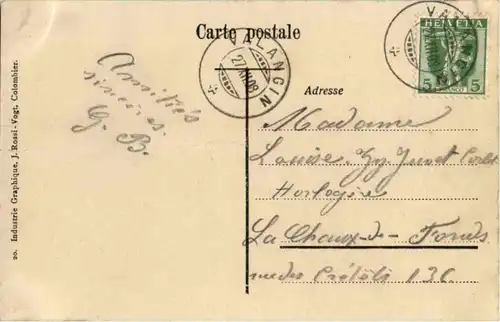 Carte postale
VALANGIN
27 XII 08
VALANGIN
HELVETIA
5 5
FRANCO
Amitiés
sincères.
G. B.
Adresse
Madame
Louise
Horlogère
La Chaux-de-Fonds
rue des Crétêts 136.
20. Industrie Graphique, J. Rossi-Vogt, Colombier.